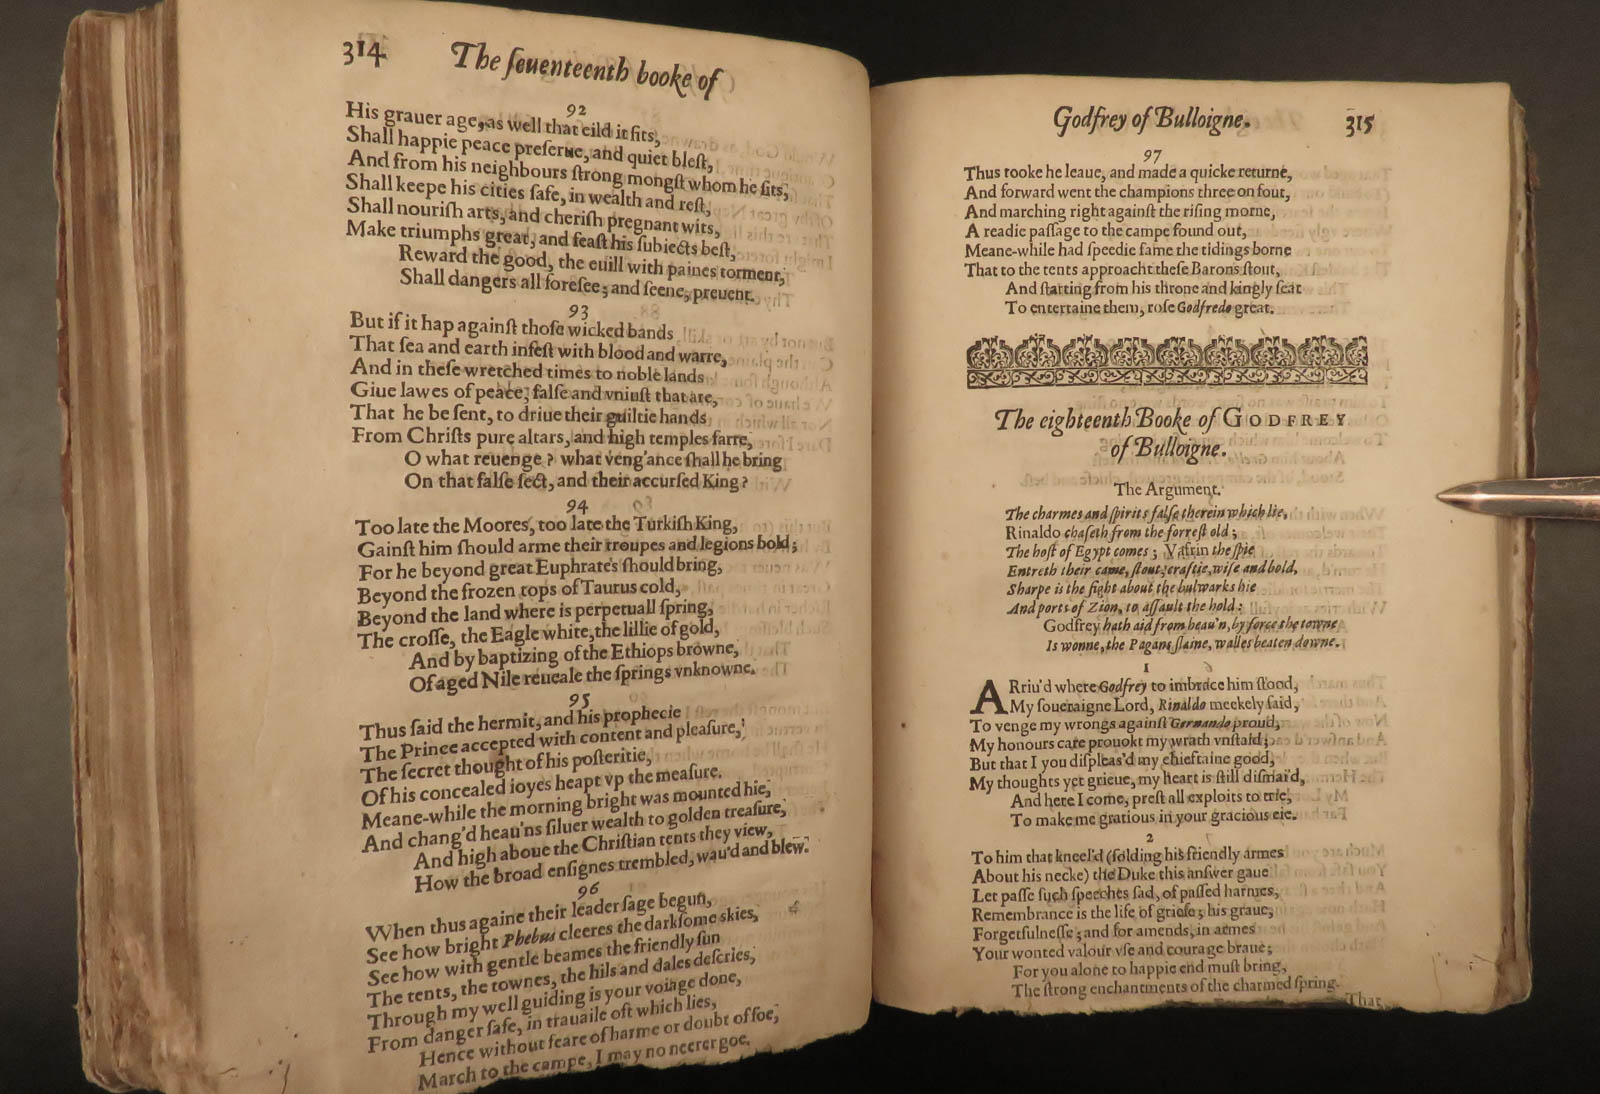 314 The ſeuenteenth booke of
92
His grauer age, as well that eild it fits,
Shall happie peace preſerue, and quiet bleſt,
And from his neighbours ſtrong mongſt whom he ſits,
Shall keepe his cities ſafe, in wealth and reſt,
Shall nouriſh arts, and cheriſh pregnant wits,
Make triumphs great, and feaſt his ſubiects beſt,
Reward the good, the euill with paines torment,
Shall dangers all foreſee; and ſeene, preuent.
93
But if it hap againſt thoſe wicked bands
That ſea and earth infeſt with blood and warre,
And in theſe wretched times to noble lands
Giue lawes of peace, falſe and vniuſt that are,
That he be ſent, to driue their guiltie hands
From Chriſts pure altars, and high temples farre,
O what reuenge? what veng'ance ſhall he bring
On that falſe ſect, and their accurſed King?
94
Too late the Moores, too late the Turkiſh King,
Gainſt him ſhould arme their troupes and legions bold;
For he beyond great Euphrates ſhould bring,
Beyond the frozen tops of Taurus cold,
Beyond the land where is perpetuall ſpring,
The croſſe, the Eagle white, the lillie of gold,
And by baptizing of the Ethiops browne,
Of aged Nile reueale the ſprings vnknowne.
95
Thus ſaid the hermit, and his prophecie
The Prince accepted with content and pleaſure,
The ſecret thought of his poſteritie,
Of his concealed ioyes heapt vp the meaſure.
Meane-while the morning bright was mounted hie,
And chang'd heau'ns ſiluer wealth to golden treaſure,
And high aboue the Chriſtian tents they view,
How the broad enſignes trembled, wau'd and blew.
96
When thus againe their leader ſage begun,
See how bright Phebus cleeres the darkſome skies,
See how with gentle beames the friendly ſun
The tents, the townes, the hils and dales deſcries,
Through my well guiding is your voiage done,
From danger ſafe, in trauaile oft which lies,
Hence without feare of harme or doubt of foe,
March to the campe, I may no neerer goe.
Godfrey of Bulloigne. 315
97
Thus tooke he leaue, and made a quicke returne,
And forward went the champions three on fout,
And marching right againſt the riſing morne,
A readie paſſage to the campe found out,
Meane-while had ſpeedie fame the tidings borne
That to the tents approacht theſe Barons ſtout,
And ſtarting from his throne and kingly ſeat
To entertaine them, roſe Godfredo great.
The eighteenth Booke of GODFREY
of Bulloigne.
The Argument.
The charmes and ſpirits falſe therein which lie,
Rinaldo chaſeth from the forreſt old;
The hoſt of Egypt comes; Vafrin the ſpie
Entreth their came, ſtout, craftie, wiſe and bold,
Sharpe is the fight about the bulwarks hie
And ports of Zion, to aſſault the hold:
Godfrey hath aid from heau'n, by force the towne
Is wonne, the Pagans ſlaine, walles beaten downe.
1
ARriu'd where Godfrey to imbrace him ſtood,
My ſoueraigne Lord, Rinaldo meekely ſaid,
To venge my wrongs againſt Gernando proud,
My honours care prouokt my wrath vnſtaid;
But that I you diſpleas'd my chieftaine good,
My thoughts yet grieue, my heart is ſtill diſmaid,
And here I come, preſt all exploits to trie,
To make me gratious in your gracious eie.
2
To him that kneel'd (folding his friendly armes
About his necke) the Duke this anſwer gaue
Let paſſe ſuch ſpeeches ſad, of paſſed harmes,
Remembrance is the life of griefe; his graue,
Forgetfulneſſe; and for amends, in armes
Your wonted valour vſe and courage braue;
For you alone to happie end muſt bring,
The ſtrong enchantments of the charmed ſpring.
That